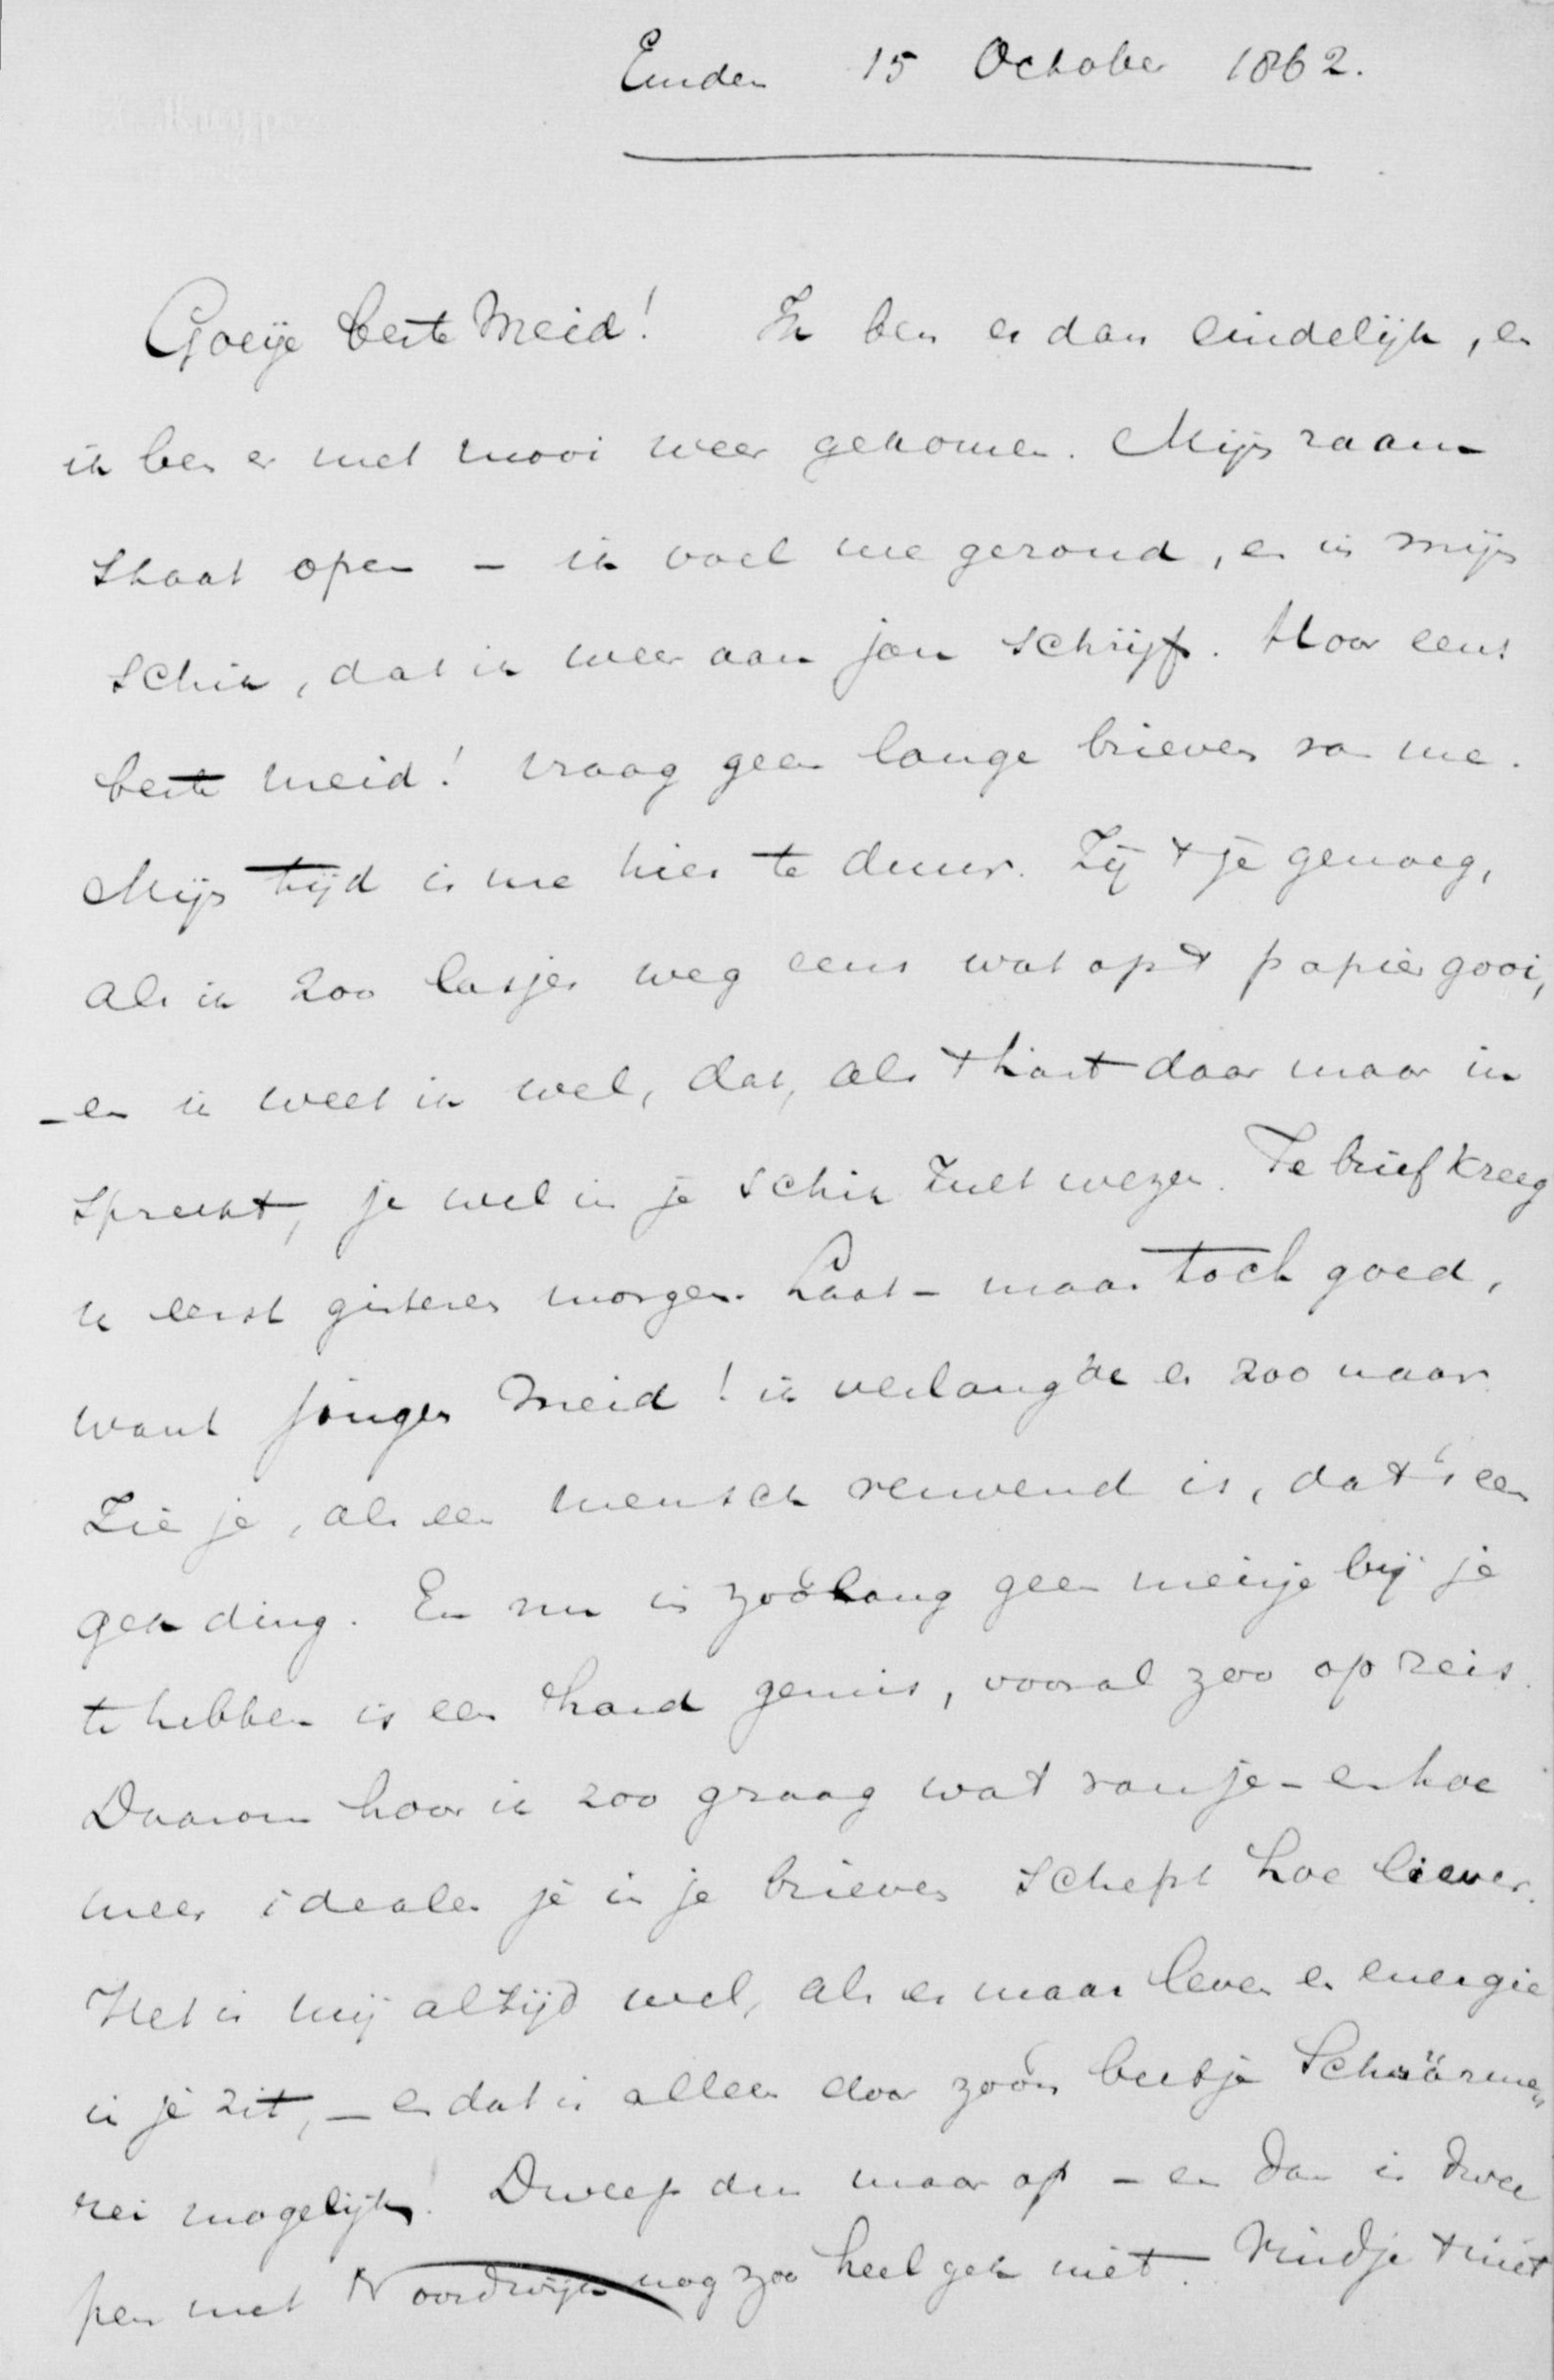 Emden 15 October 1862.
Goeije beste Meid! Ik ben er dan eindelijk, en
ik ben er met mooi weer gekomen. Mijn raam
staat open – ik voel me gezond, en in mijn
schik, dat ik weer aan jou schrijf. Hoor eens
beste meid! vraag geen lange brieven van me.
Mijn tijd is me hier te duur. Zij 't je genoeg,
als ik zoo losjes weg eens wat op 't papier gooi,
– en ik weet ik wel, dat, als 't hart daar maar in
spreekt, je wel in je schik zult wezen. Je brief kreeg
ik eerst gisteren morgen. Laat – maar toch goed,
want jonger meid! ik verlangde er zoo naar
Zie je, als een mensch verwend is, dat 's een
gek ding. En nu is zoolang geen meisje bij je
te hebben is een hard gemis, vooral zoo op reis.
Daarom hoor ik zoo graag wat van je – en hoe
meer idealen je in je brieven schept hoe liever.
Het is mij altijd wel, als er maar leven en energie
in je zit, – en dat is alleen door zoo'n beetje Schwärme-
rei mogelijk! Dweep dus maar op – en dan is dwee
pen met Noordwijk nog zoo heel gek niet. Vindje 't niet